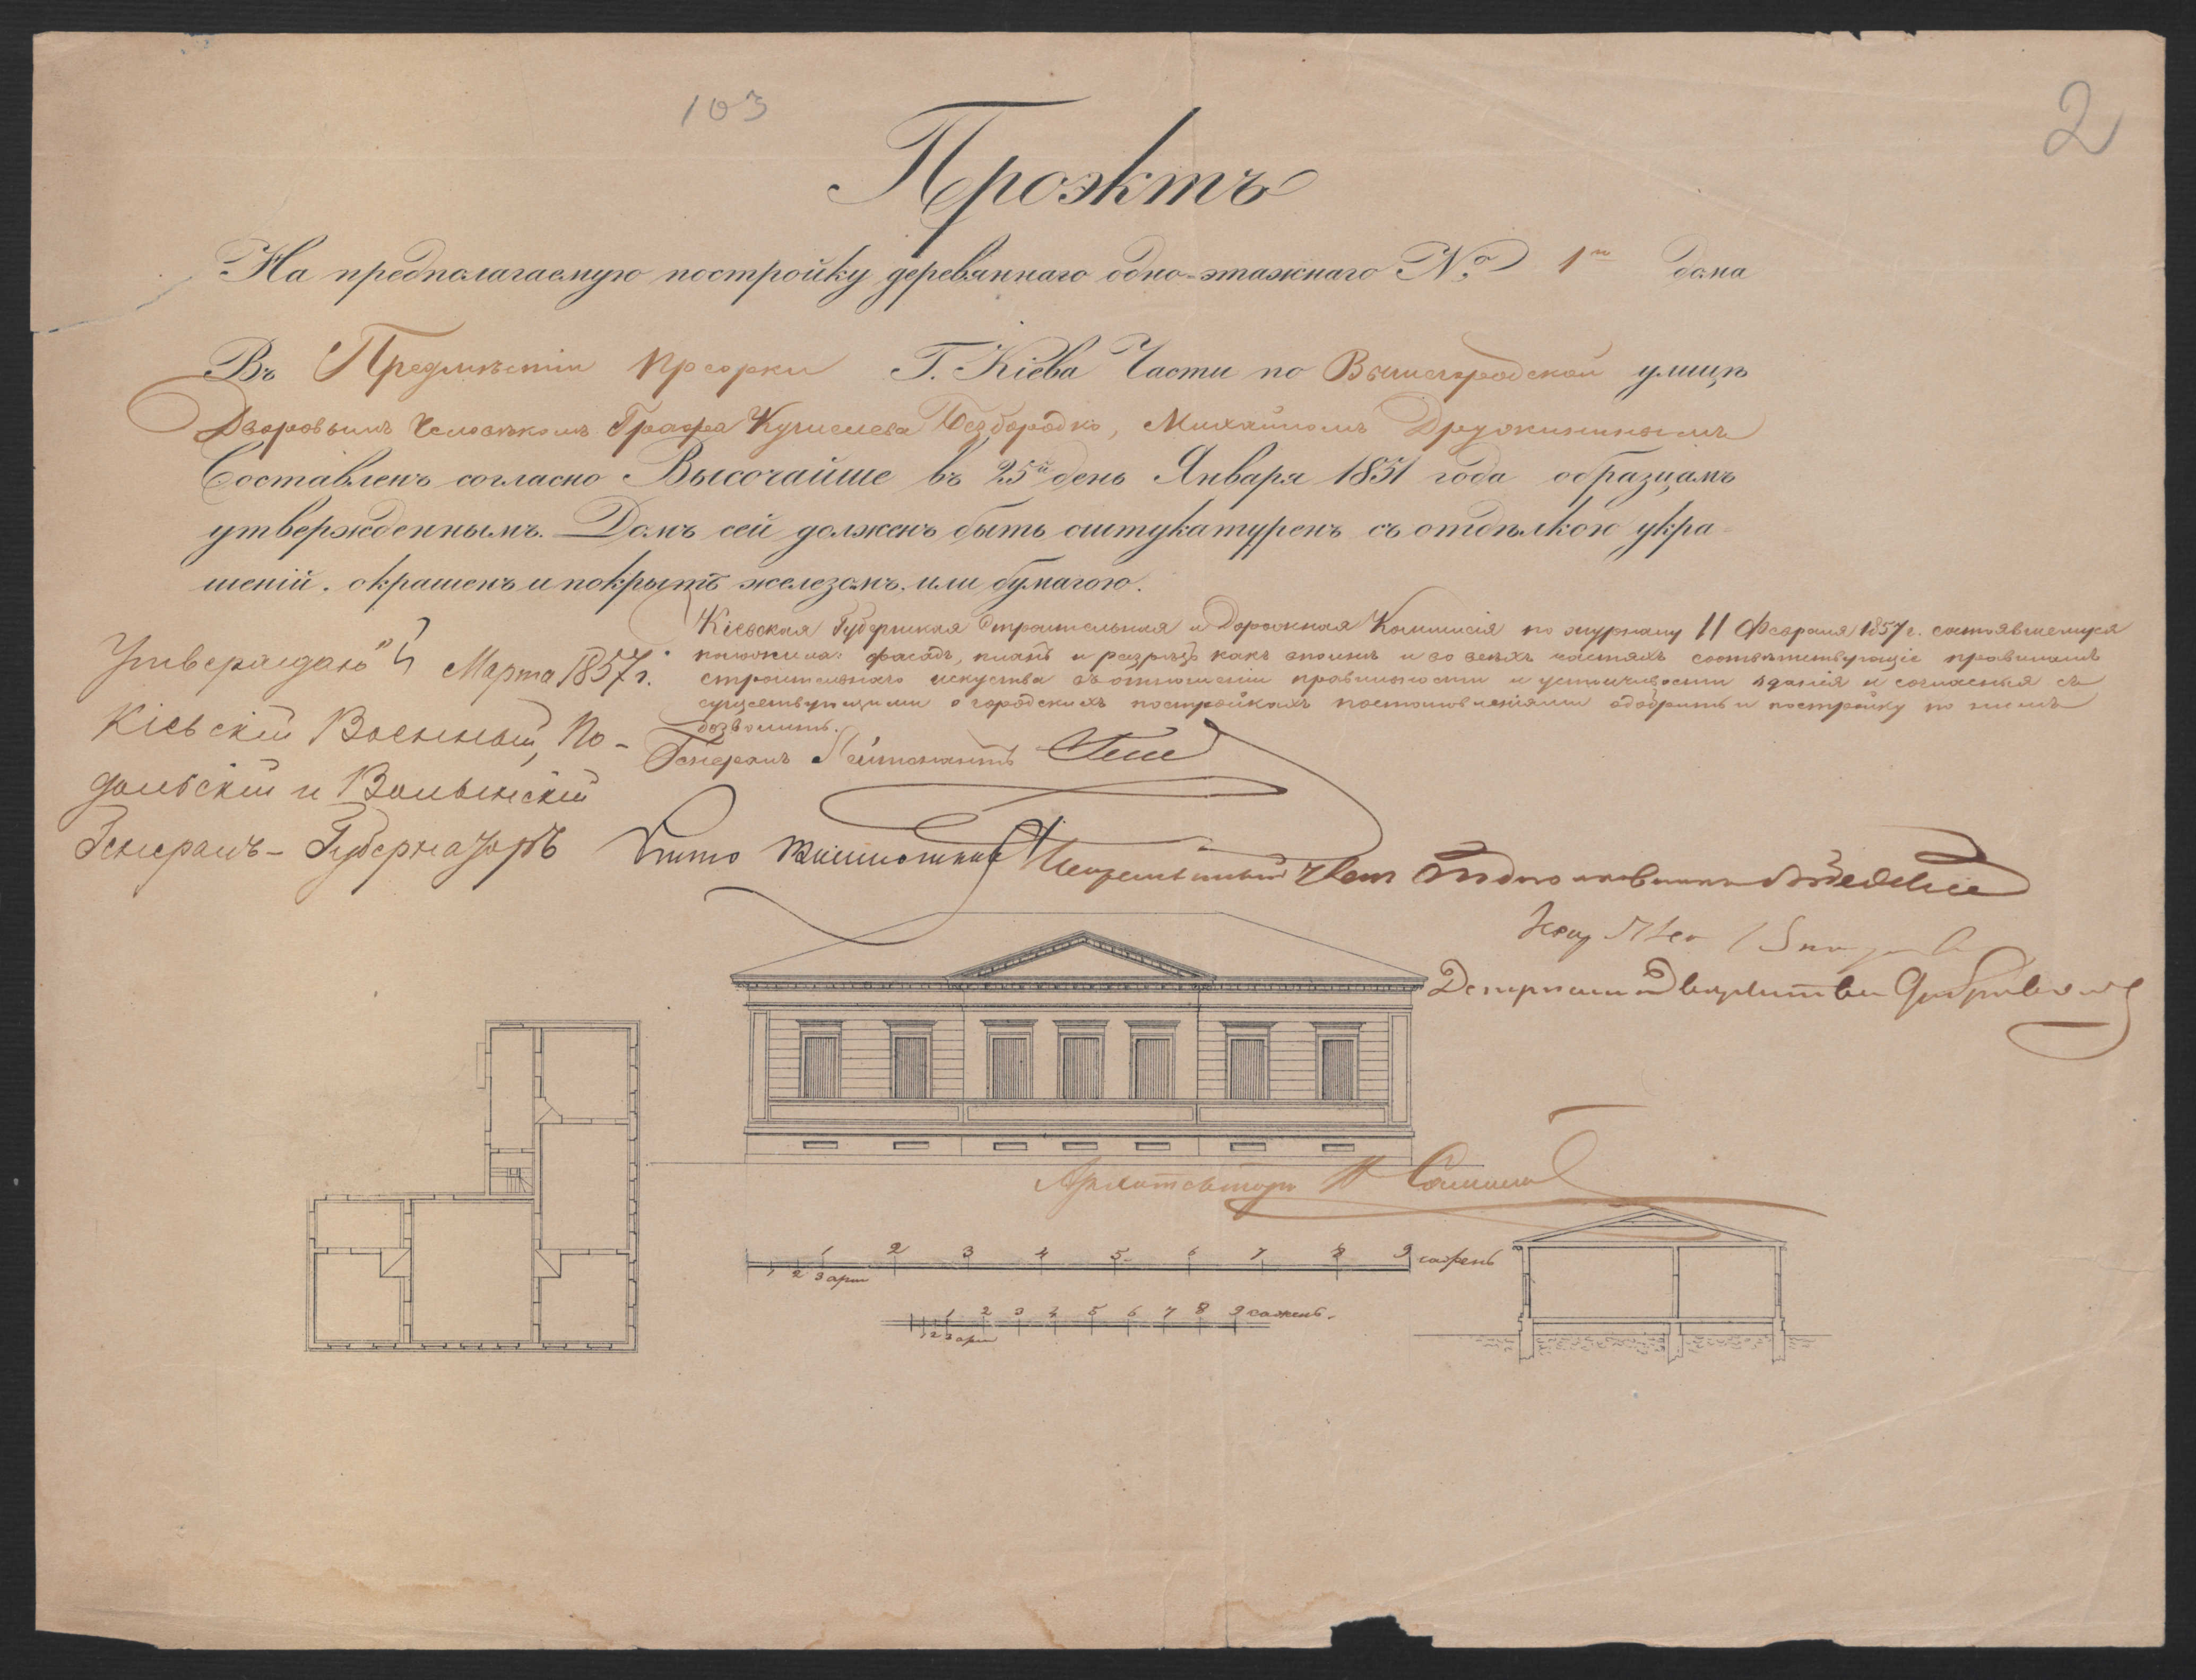 103
2
Проэктъ
На предполагаемую постройку деревяннаго одно-этажнаго №. 1го дома
Въ Предмѣстіи Преорки Г. Кіева Части по Вышегородской улицѣ
Дворовымъ Человѣкомъ Графа Кушелева Безбородко, Михайломъ Дружининымъ
Составленъ согласно Высочайше въ 25й день Января 1851 года образцамъ
утвержденнымъ. Домъ сей долженъ быть оштукатуренъ съ отдѣлкою укра-
шеній. окрашенъ и покрытъ железомъ. или бумагою.
Кіевская Губернская Строительная и Дорожная Коммисія по журналу 11 Февраля 1857 г. состоявшемуся
положила: фасадъ, планъ и разрѣзъ какъ вполнѣ и во всѣхъ частяхъ соотвѣтствующіе правиламъ
строительнаго искуства въ отношеніи правильности и устойчивости зданія и согласныя съ
существующими о городскихъ постройкахъ постановленіями одобрить и постройку по нимъ
дозволить.
Утверждаю" Марта 1857 г.
Кіевскій Военный, По-
дольскій и Волынскій
Генералъ-Губернаторъ
Генералъ Лейтенантъ
Архитекторъ
1 2 3 4 5 6 7 8 9 сажень
1 2 3 арш
1 2 3 4 5 6 7 8 9 сажень.
1 2 3 арш